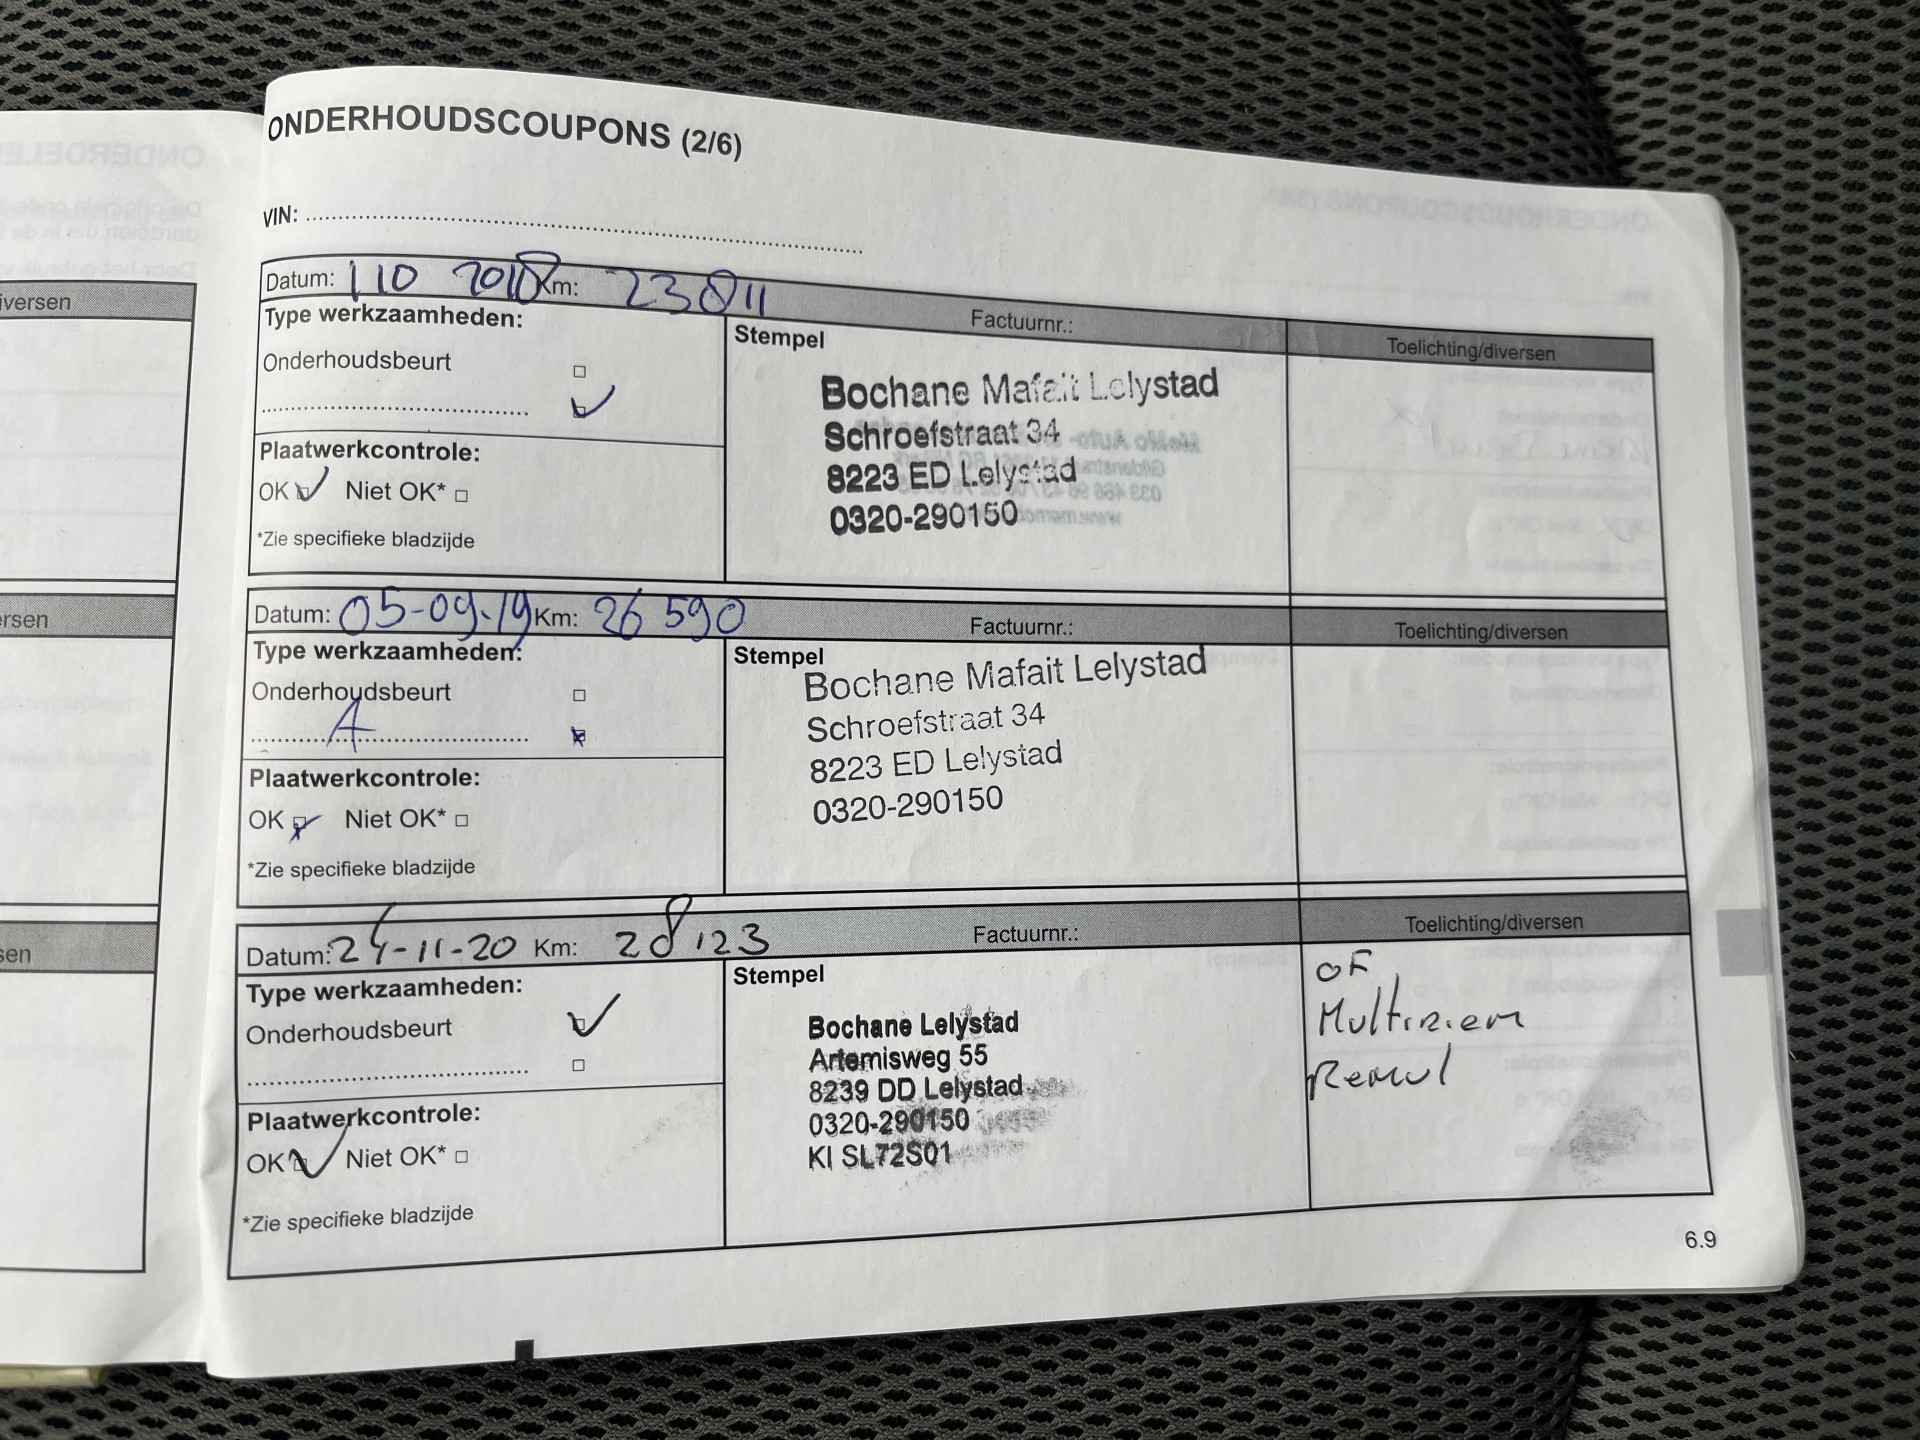 ONDERHOUDSCOUPONS (2/6)
VIN:
Datum: 1 10 2018 Km: 23811
Factuurnr.:
Toelichting/diversen
Type werkzaamheden:
Onderhoudsbeurt
Plaatwerkcontrole:
OK Niet OK*
*Zie specifieke bladzijde
Stempel
Bochane Mafait Lelystad
Schroefstraat 34
8223 ED Lelystad
0320-290150
Datum: 05-09-19 Km: 26 590
Factuurnr.:
Toelichting/diversen
Type werkzaamheden:
Onderhoudsbeurt
A
Plaatwerkcontrole:
OK Niet OK*
*Zie specifieke bladzijde
Stempel
Bochane Mafait Lelystad
Schroefstraat 34
8223 ED Lelystad
0320-290150
Datum: 24-11-20 Km: 28123
Factuurnr.:
Toelichting/diversen
Type werkzaamheden:
Onderhoudsbeurt
Plaatwerkcontrole:
OK Niet OK*
*Zie specifieke bladzijde
Stempel
Bochane Lelystad
Artemisweg 55
8239 DD Lelystad
0320-290150
KI SL72S01
OF
Multiriem
6.9
iversen
ersen
sen